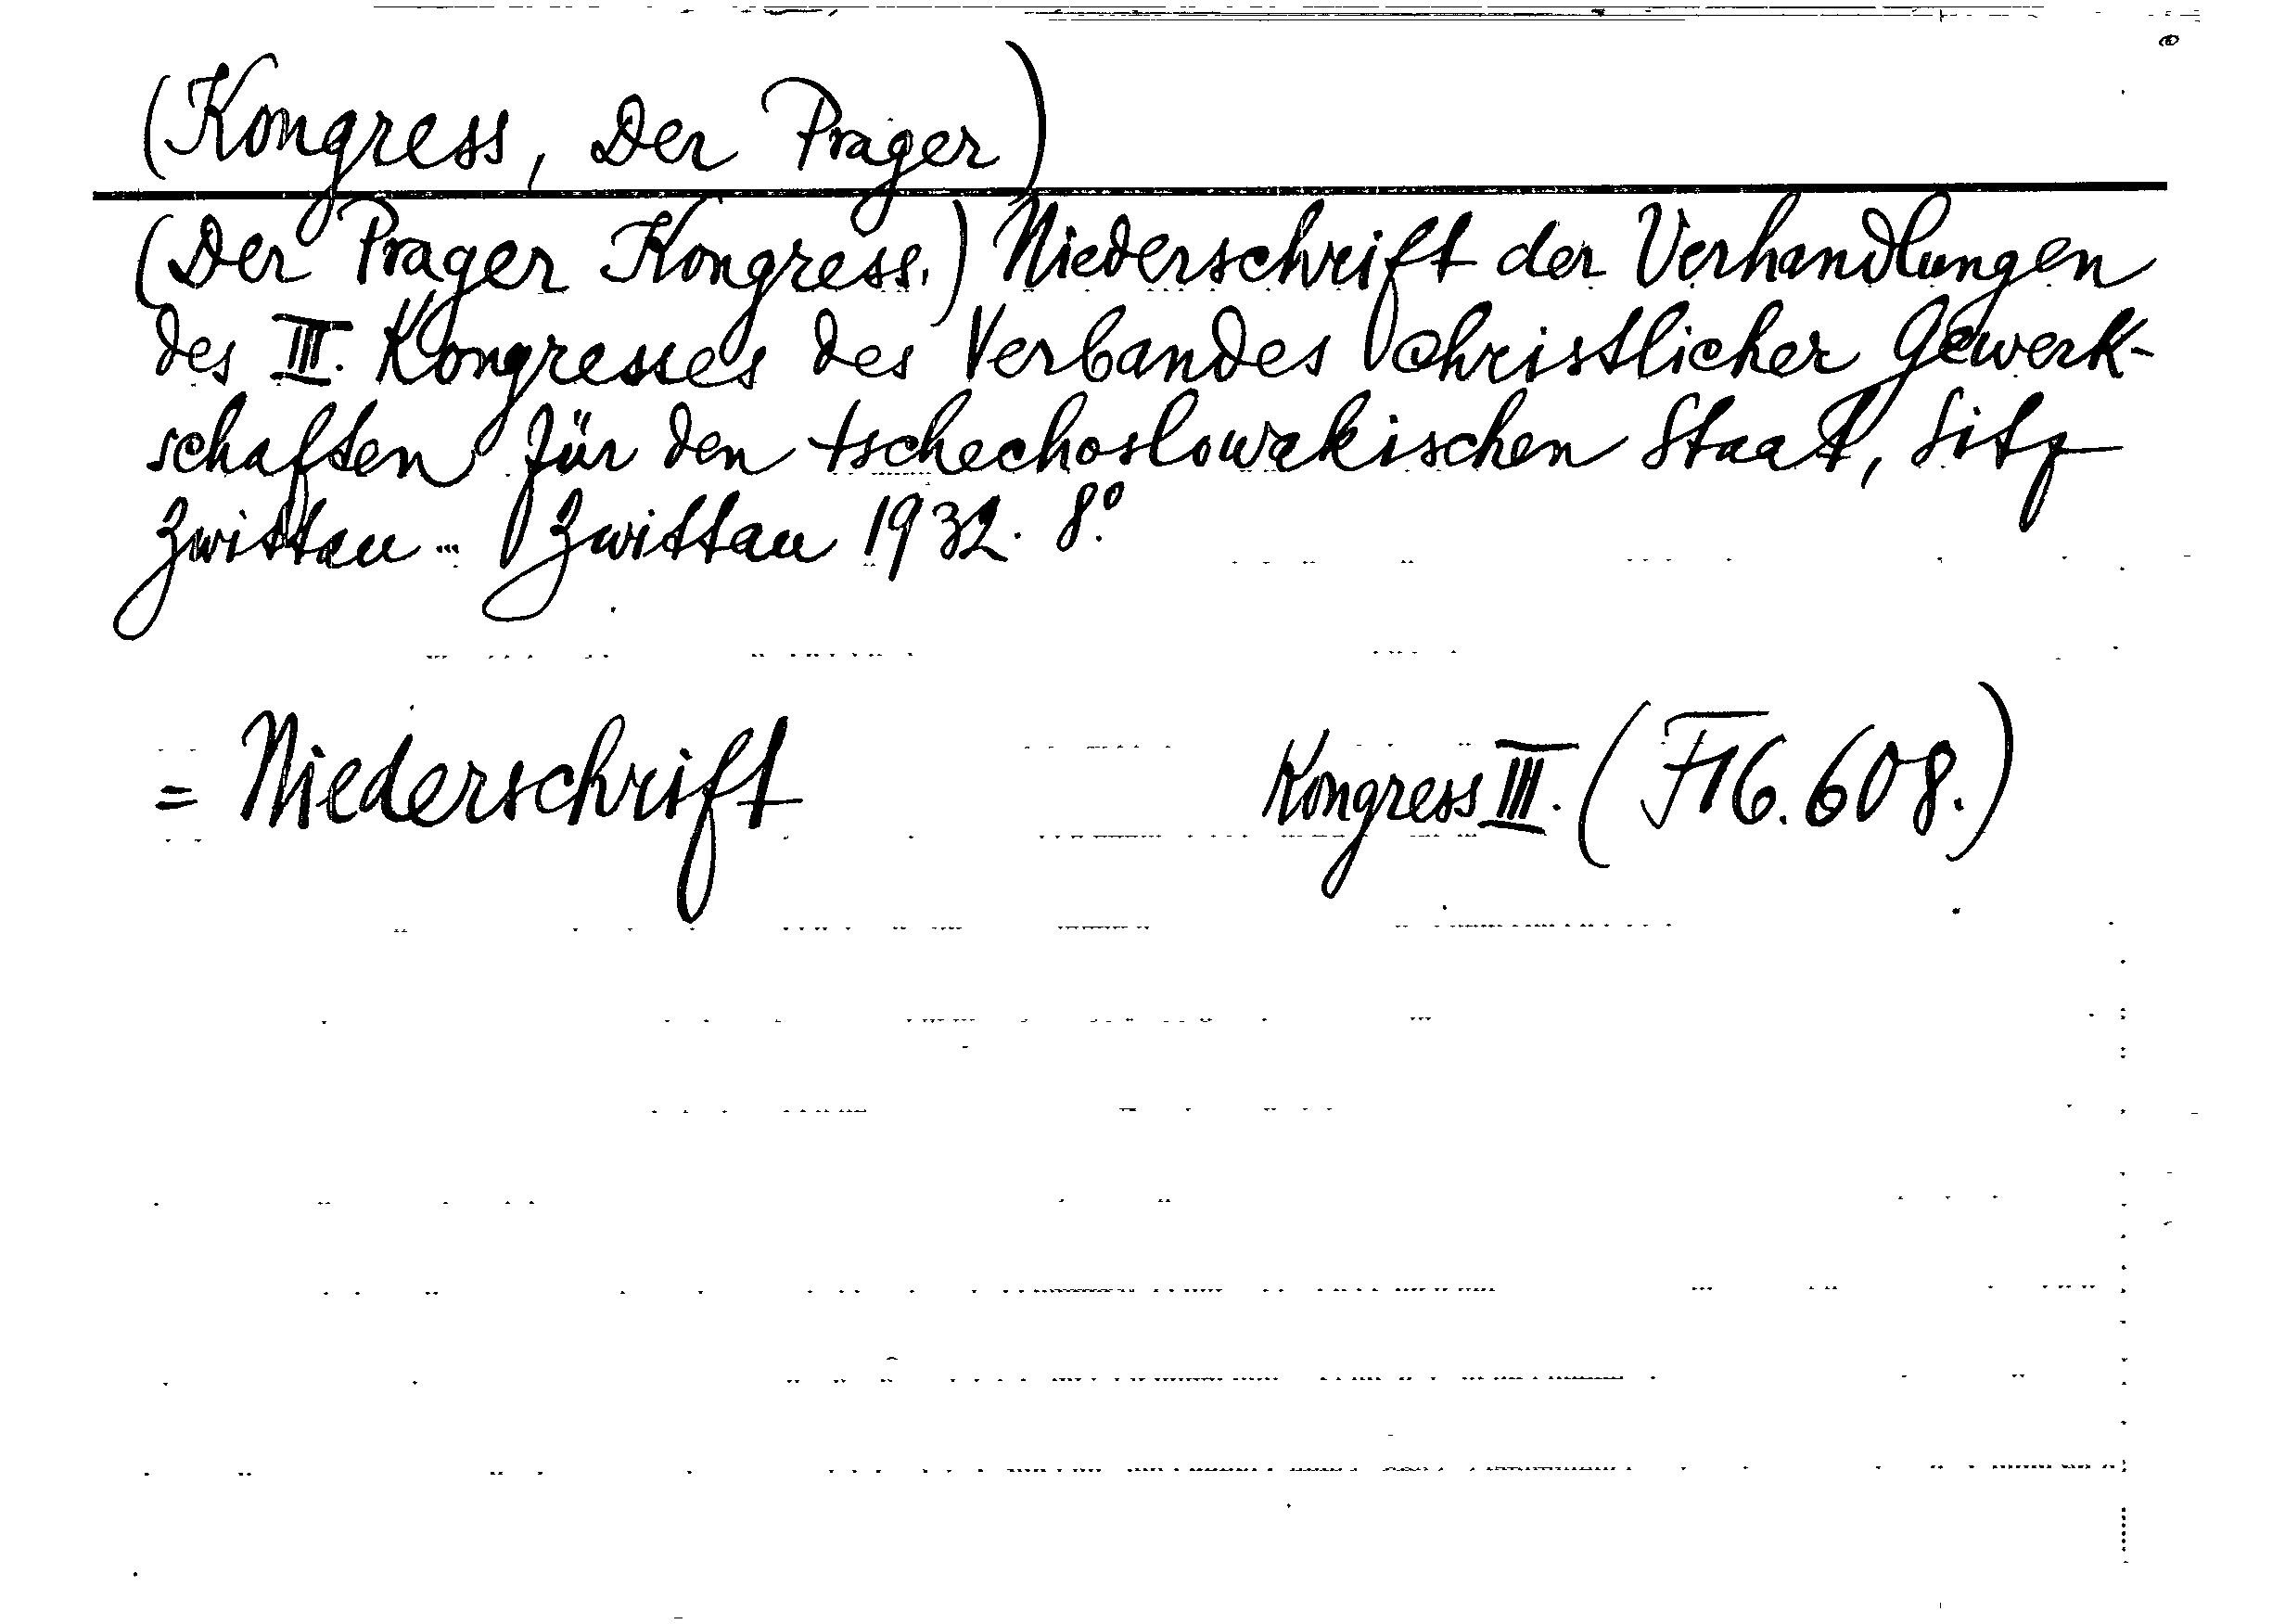 (Kongress, Der Prager)
(Der Prager Kongress.) Niederschrift der Verhandlungen
des III. Kongresses des Verbandes christlicher Gewerk-
schaften für den tschechoslowakischen Staat, Sitz
Zwittau ... Zwittau 1932. 8°.
= Niederschrift Kongress III. (F 16.608.)